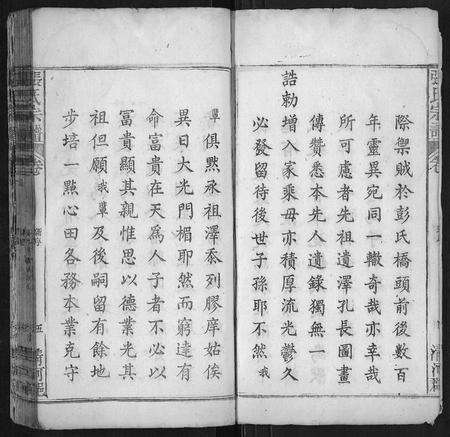 際禦賊於彭氏橋頭前後數百
年靈異宛同一轍奇哉亦幸哉
所可慮者先祖遺澤孔長圖畫
傳贊悉本先人遺錄獨無一
誥勅增入家乘毋亦積厚流光鬱久
必發留待後世子孫耶不然我
輩俱黙承祖澤忝列膠庠姑俟
異日大光門楣耶然而窮達有
命富貴在天爲人子者不必以
富貴顯其親惟思以德業光其
祖但願我輩及後嗣留有餘地
步培一點心田各務本業克守
張氏宗譜
卷
五
清河郡